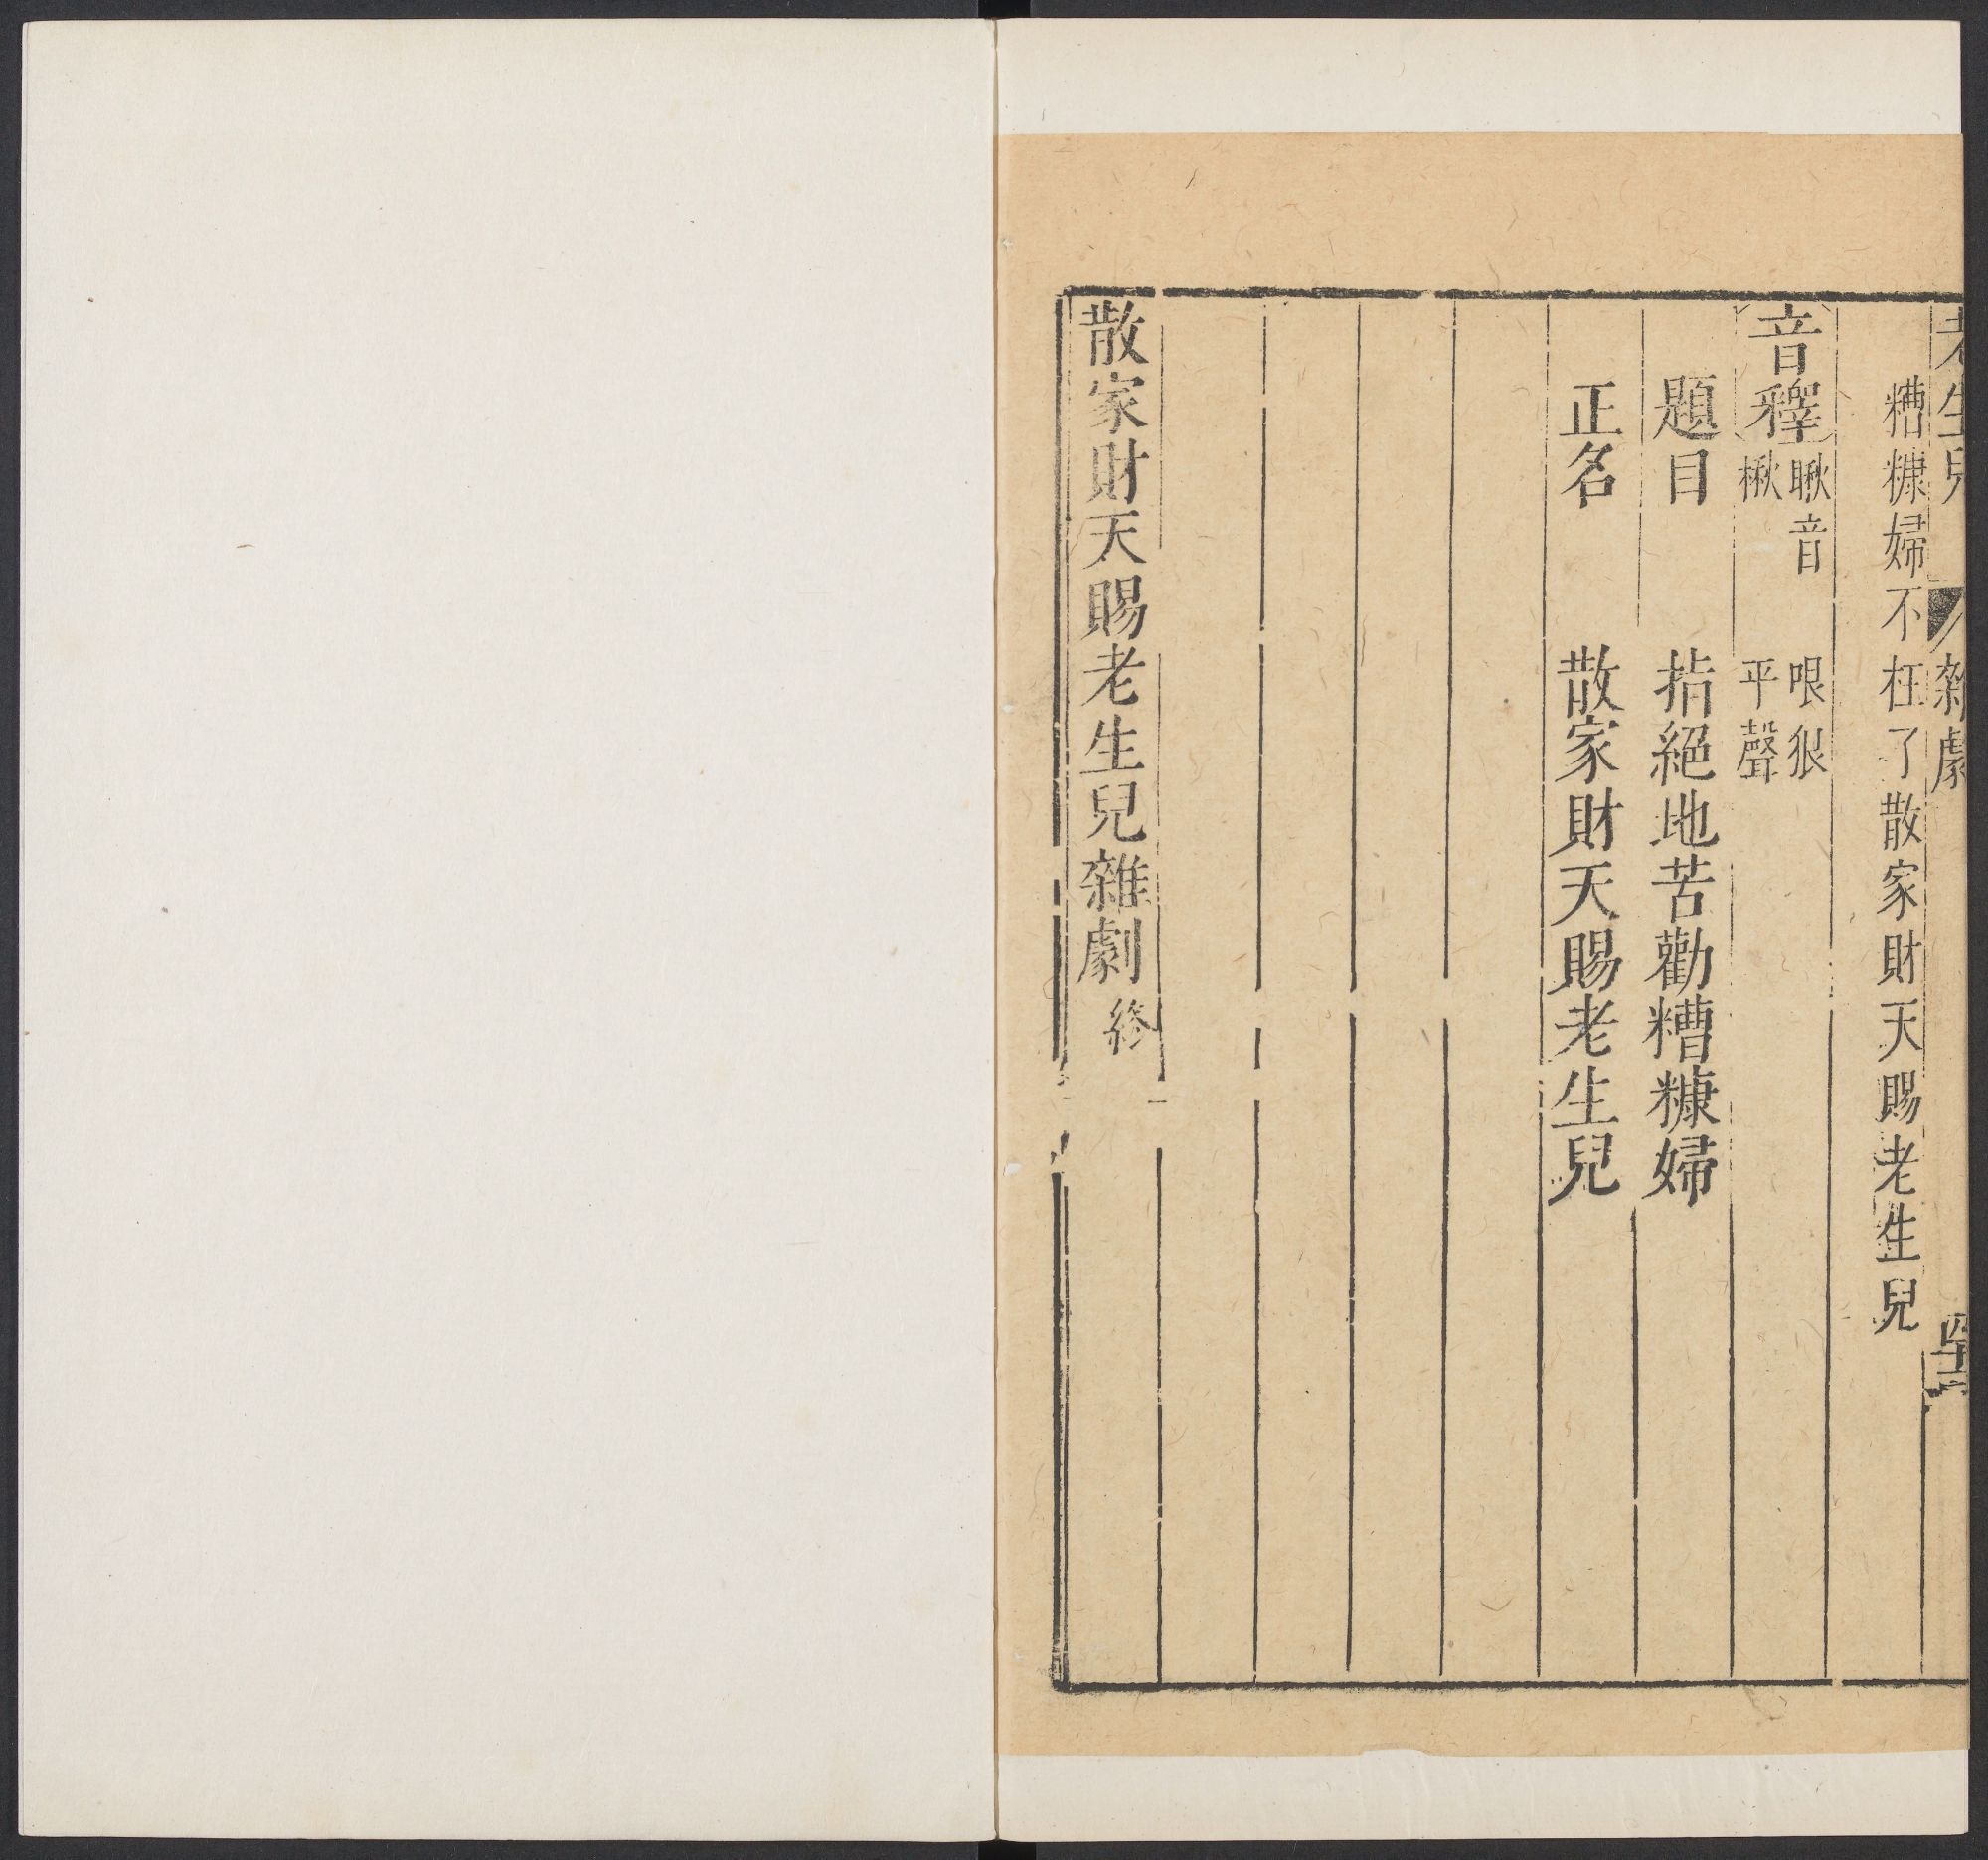 老生兒 雜劇
糟糠婦不枉了散家財天賜老生兒
音釋 瞅音楸 哏狠平聲
題目 掂絕地苦勸糟糠婦
正名 散家財天賜老生兒
散家財天賜老生兒雜劇 終